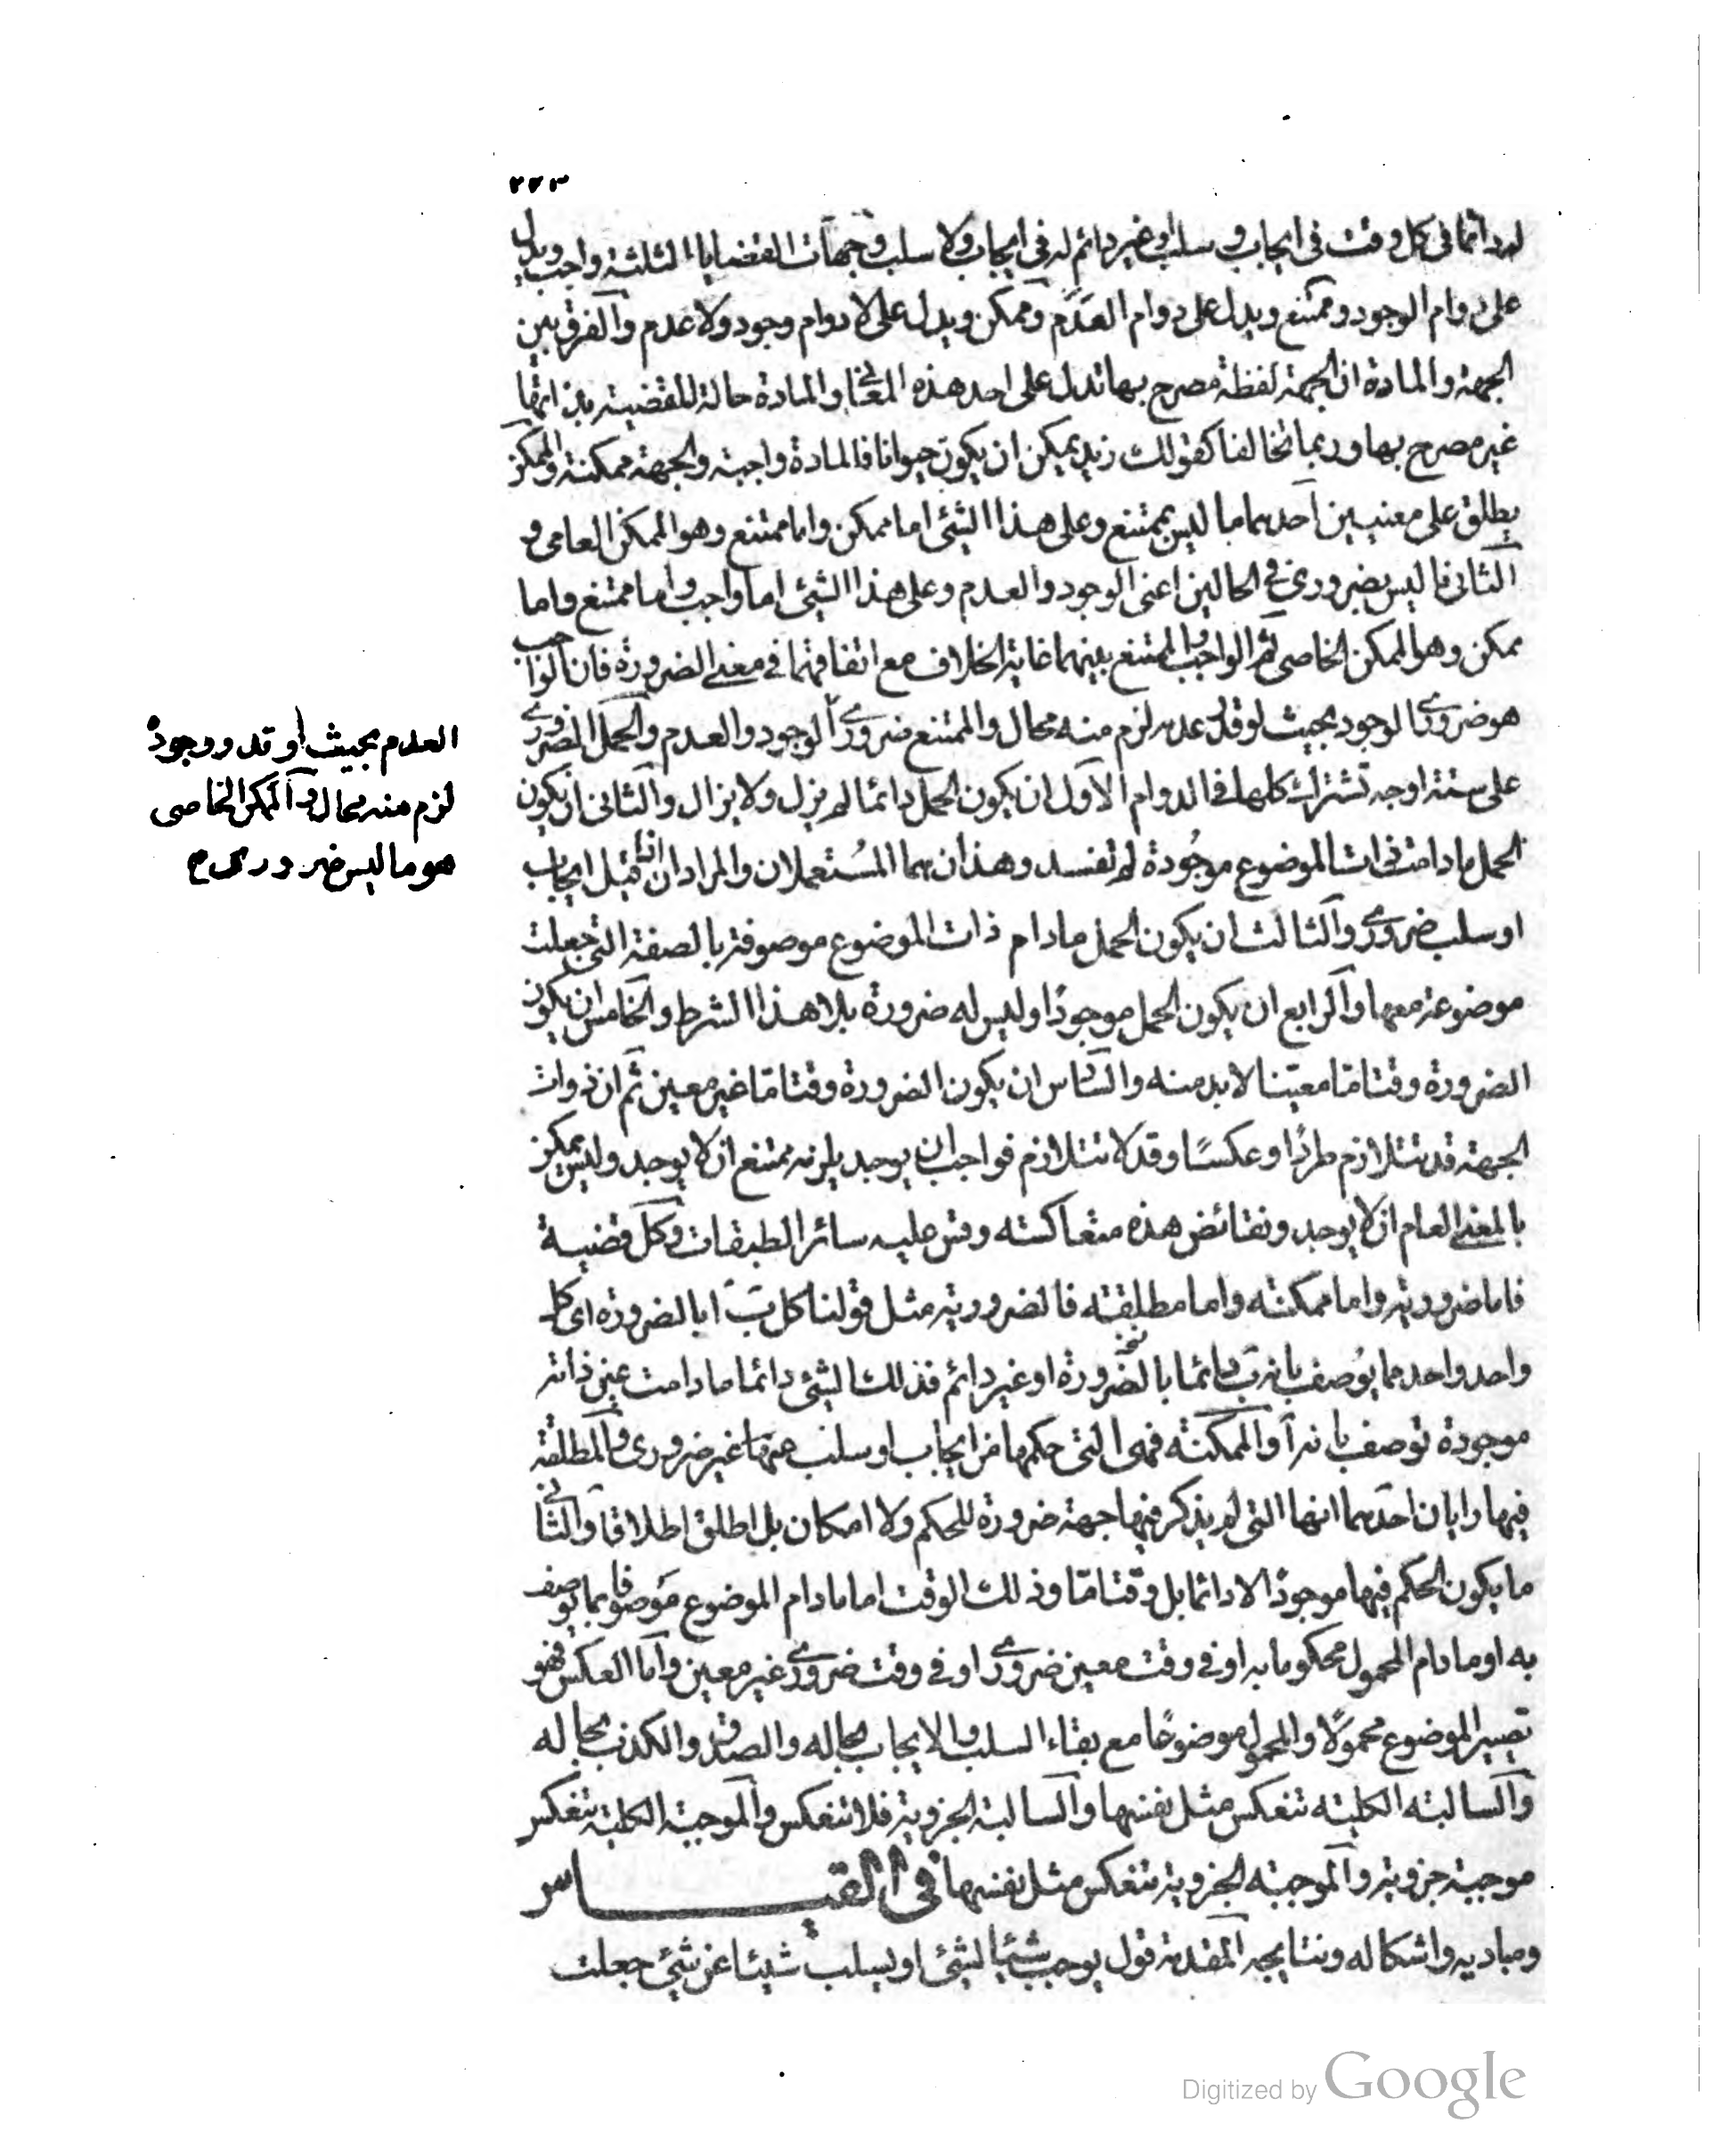 ٢٢٣
له دائما في كل وقت في ايجاب و سلب او غير دائم له في ايجاب ولا سلب وجهات القضايا الثلثة واجب ويدل
على دوام الوجود وممتنع ويدل على دوام العدم وممكن ويدل على لا دوام وجود ولا عدم والفرق بين
الجهة والمادة ان الجهة لفظة مصرح بها تدل على احد هذه المعاني والمادة حالة للقضية بذاتها
غير مصرح بها وربما تخالفا كقولك زيد يمكن ان يكون حيوانا فالمادة واجبة والجهة ممكنة والممكن
يطلق على معنيين احدهما ما ليس بممتنع وعلى هذا الشئ اما ممكن واما ممتنع وهو الممكن العامي و
الثاني ما ليس بضروري في الحالين اعني الوجود والعدم وعلى هذا الشئ اما واجب واما ممتنع واما
ممكن وهو الممكن الخاصي ثم الواجب والممتنع بينهما غاية الخلاف مع اتفاقهما في معنى الضرورة فان الواجب
هو ضروري الوجود بحيث لو قدر عدمه لزم منه محال والممتنع ضروري الوجود والعدم والحمل الضروري
على ستة اوجه تشترك كلها في الدوام الاول ان يكون الحمل دائما لم يزل ولا يزال والثاني ان يكون
الحمل ما دامت ذات الموضوع موجودة لم تفسد وهذان هما المستعملان والمراد ان اذا قيل ايجاب
او سلب ضروري والثالث ان يكون الحمل ما دام ذات الموضوع موصوفة بالصفة التي جعلت
موضوعة معها والرابع ان يكون الحمل موجودًا وليس له ضرورة بلا هذا الشرط والخامس ان يكون
الضرورة وقتا ما معينا لا بد منه والسادس ان يكون الضرورة وقتا ما غير معين ثم ان ذوات
الجهة قد تتلازم طردًا وعكسًا وقد لا تتلازم فواجب ان يوجد يلزمه ممتنع ان لا يوجد وليس يمكن
بالمعنى العام ان لا يوجد ونقائض هذه متعاكسة وقس عليه سائر الطبقات وكل قضية
فاما ضرورية واما ممكنة واما مطلقة فالضرورية مثل قولنا كل ب ا بالضرورة اى كل
واحد واحد مما يوصف بانه ب دائما بالضرورة او غير دائم فذلك الشئ دائما ما دامت عين ذاته
موجودة توصف بانه ا والممكنة فهى التي حكمها من ايجاب او سلب عنها غير ضروري والمطلقة
فيها رايان احدهما انها التي لم يذكر فيها جهة ضرورة للحكم ولا امكان بل اطلق اطلاقا والثاني
ما يكون الحكم فيها موجودًا لا دائما بل وقتا ما وذلك الوقت اما ما دام الموضوع موصوفا بما يوصف
به او ما دام المحمول محكوما به او في وقت معين ضروري او في وقت ضروري غير معين واما العكس فهو
تصيير الموضوع محمولًا والمحمول موضوعًا مع بقاء السلب والايجاب بحاله والصدق والكذب بحاله
والسالبة الكلية تنعكس مثل نفسها والسالبة الجزوية فلا تنعكس والموجبة الكلية تنعكس
موجبة جزوية والموجبة الجزوية تنعكس مثل نفسها في القياس
ومباديه واشكاله ونتايجه المقدمة قول يوجب شيئا لشئ او يسلب شيئا عن شئ جعلت
العدم بحيث لو قدر وجوده
لزم منه محال والممكن الخاصى
هو ما ليس ضرورى م
Digitized by Google